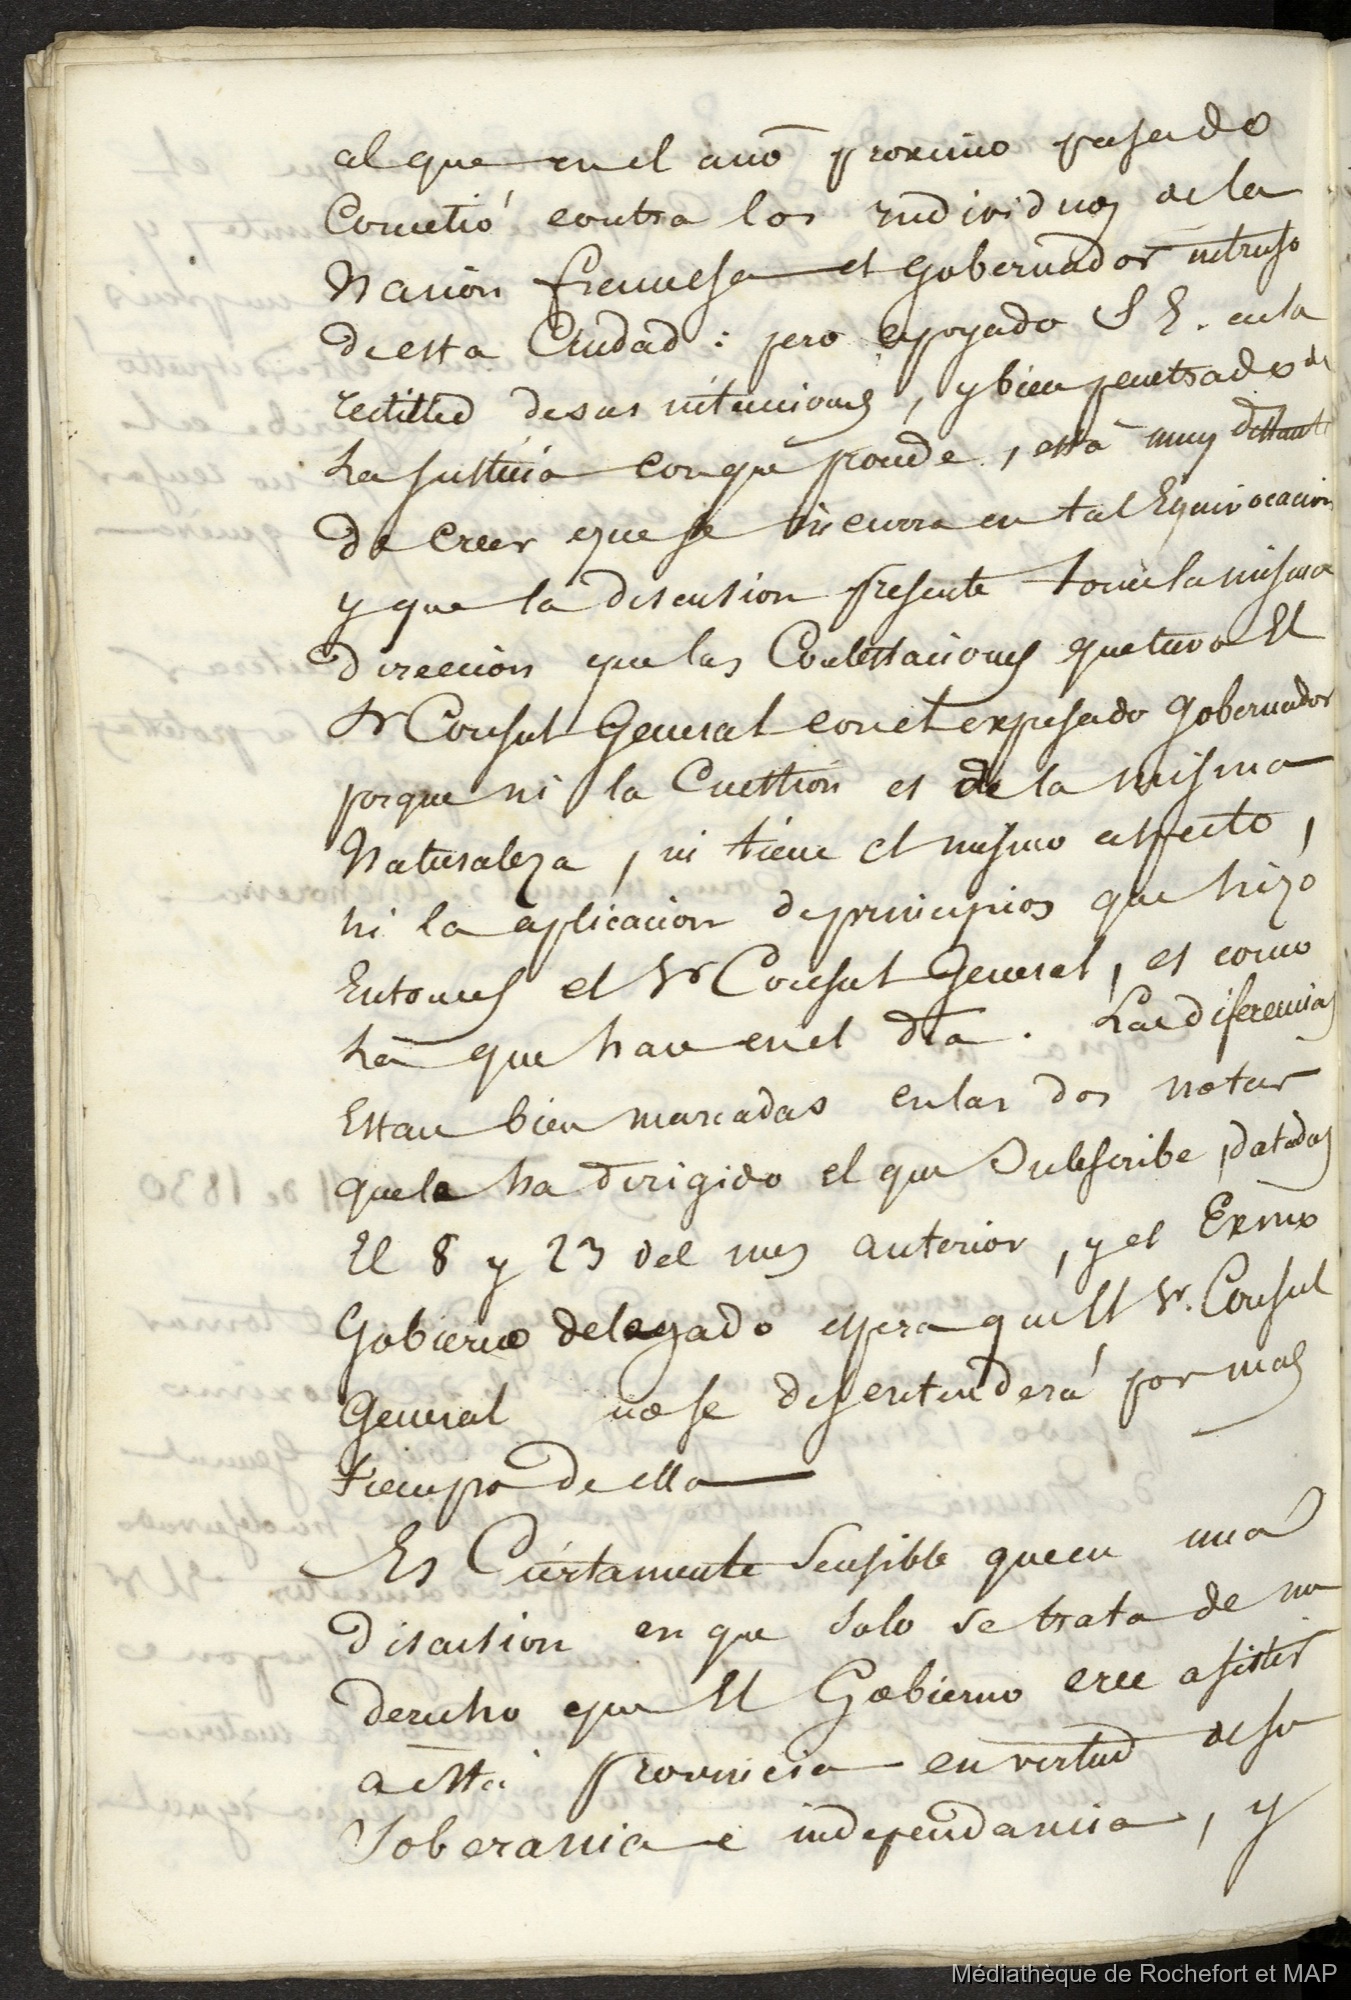 al que en el anō proximo pasado
Cometió contra los individuos de la
Nacion francesa el gobernador intruso
de esta Ciudad : pero apoyado S E. en la
rectitud de sus intenciones , y bien penetrado de
La Justicia con que procede , está muy distante
de creer que se incurra en tal Equivocacion
y que la discusion presente tome la misma
direccion que las Contestaciones que tuvo El
Sr Consul General con el expresado gobernador
porque ni la Cuestion es de la misma
Naturaleza , ni tiene el mismo aspecto ,
ni la aplicacion de principios que hizo
Entonces el Sr Consul General , es como
La que hace en el dia . Las diferencias
Estan bien marcadas en las dos notas
que le ha dirigido el que Subscribe , datadas
El 8 y 23 del mes anterior , y el Exmo
Gobierno delegado espera que El Sr. Consul
General no se desentenderá por mas
tiempo de ella
Es Ciertamente Sensible que en una
discusion en que solo se trata de un
derecho que El Gobierno cree asistir
a esta provincia en virtud de su
Soberania e independancia , y
Médiathèque de Rochefort et MAP